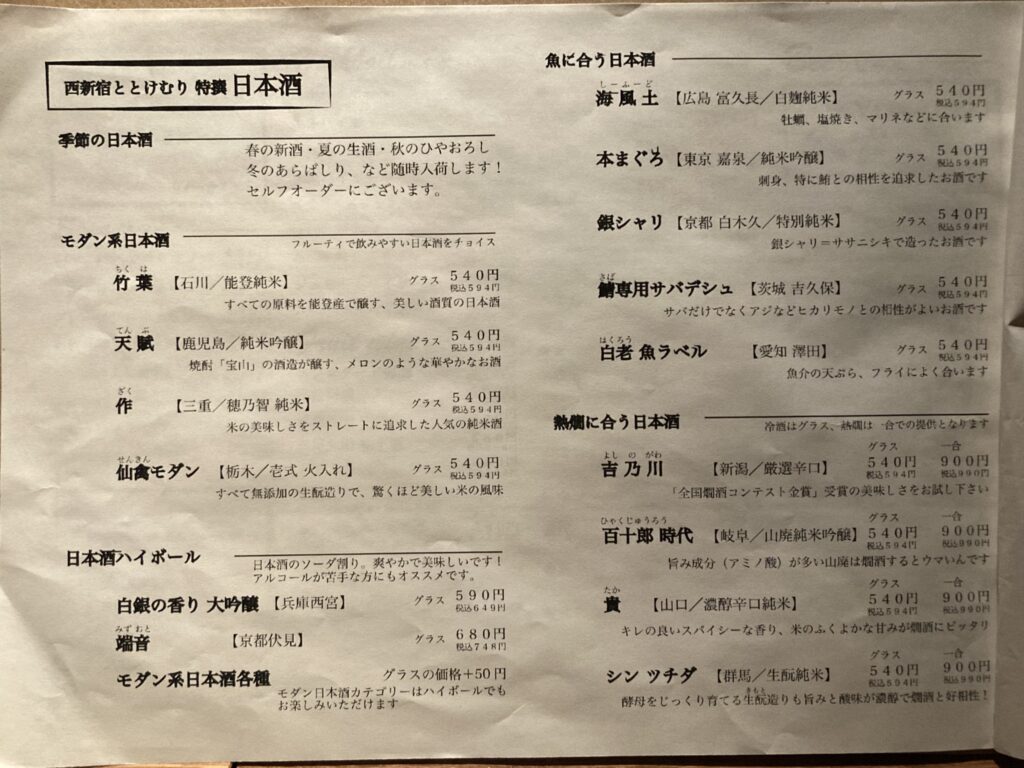 西新宿ととけむり 特撰 日本酒
季節の日本酒
春の新酒・夏の生酒・秋のひやおろし
冬のあらばしり、など随時入荷します！
セルフオーダーにございます。
モダン系日本酒
フルーティで飲みやすい日本酒をチョイス
ちく は
竹 葉 【石川／能登純米】 グラス 540円
税込594円
すべての原料を能登産で醸す、美しい酒質の日本酒
てん ぶ
天 賦 【鹿児島／純米吟醸】 グラス 540円
税込594円
焼酎「宝山」の酒造が醸す、メロンのような華やかなお酒
ざく
作 【三重／穂乃智 純米】 グラス 540円
税込594円
米の美味しさをストレートに追求した人気の純米酒
せんきん
仙禽モダン 【栃木／壱式 火入れ】 グラス 540円
税込594円
すべて無添加の生酛造りで、驚くほど美しい米の風味
日本酒ハイボール
日本酒のソーダ割り。爽やかで美味しいです！
アルコールが苦手な方にもオススメです。
白銀の香り 大吟醸 【兵庫西宮】 グラス 590円
税込649円
みず おと
端音 【京都伏見】 グラス 680円
税込748円
モダン系日本酒各種 グラスの価格＋50円
モダン日本酒カテゴリーはハイボールでも
お楽しみいただけます
魚に合う日本酒
しーふーど
海風土 【広島 富久長／白麹純米】 グラス 540円
税込594円
牡蠣、塩焼き、マリネなどに合います
本まぐろ 【東京 嘉泉／純米吟醸】 グラス 540円
税込594円
刺身、特に鮪との相性を追求したお酒です
銀シャリ 【京都 白木久／特別純米】 グラス 540円
税込594円
銀シャリ＝ササニシキで造ったお酒です
さば
鯖専用サバデシュ 【茨城 吉久保】 グラス 540円
税込594円
サバだけでなくアジなどヒカリモノとの相性がよいお酒です
はくろう
白老 魚ラベル 【愛知 澤田】 グラス 540円
税込594円
魚介の天ぷら、フライによく合います
熱燗に合う日本酒
冷酒はグラス、熱燗は一合での提供となります
グラス 一合
よし の がわ
吉乃川 【新潟／厳選辛口】 540円 900円
税込594円 税込990円
「全国燗酒コンテスト金賞」受賞の美味しさをお試し下さい
グラス 一合
ひゃくじゅうろう
百十郎 時代 【岐阜／山廃純米吟醸】 540円 900円
税込594円 税込990円
旨み成分（アミノ酸）が多い山廃は燗酒するとウマいんです
グラス 一合
たか
貴 【山口／濃醇辛口純米】 540円 900円
税込594円 税込990円
キレの良いスパイシーな香り、米のふくよかな甘みが燗酒にピッタリ
グラス 一合
シン ツチダ 【群馬／生酛純米】 540円 900円
税込594円 税込990円
きもと
酵母をじっくり育てる生酛造りも旨みと酸味が濃醇で燗酒と好相性！